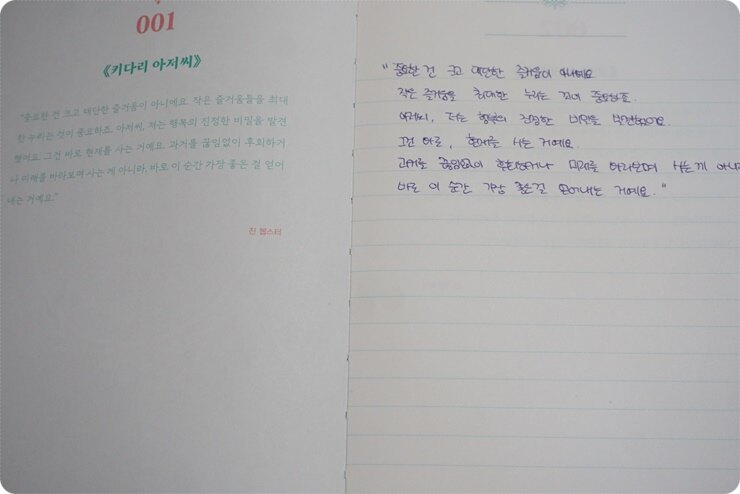 001
《키다리 아저씨》
"중요한 건 크고 대단한 즐거움이 아니에요. 작은 즐거움들을 최대
한 누리는 것이 중요하죠. 아저씨, 저는 행복의 진정한 비밀을 발견
했어요. 그건 바로 현재를 사는 거예요. 과거를 끊임없이 후회하거
나 미래를 바라보며 사는 게 아니라, 바로 이 순간 가장 좋은 걸 얻어
내는 거예요."
진 웹스터
"중요한 건 크고 대단한 즐거움이 아니에요
작은 즐거움을 최대한 누리는 중요하죠.
아저씨, 저는 행복의 진정한 비밀을 발견했어요.
그건 바로, 현재를 사는 거예요.
과거를 끊임없이 후회하거나 미래를 바라보며 사는게 아니라
바로 이 순간 가장 좋은걸 얻어내는 거예요."